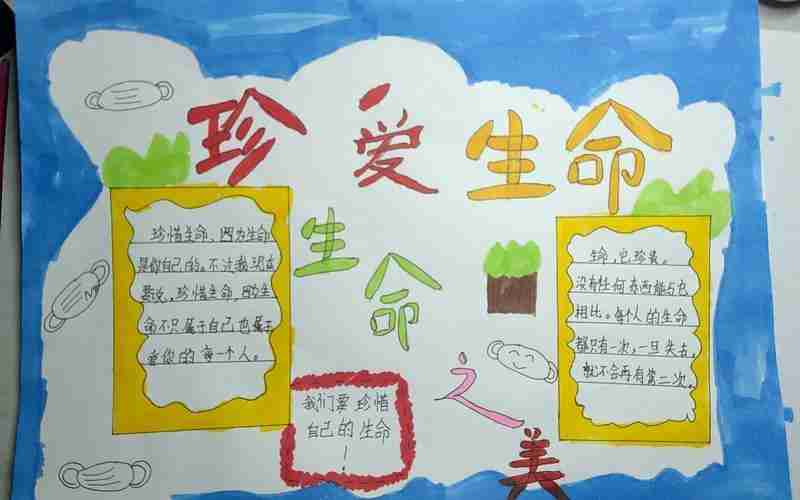 珍爱生命
生命之美
珍惜生命，因为生命
是你自己的。不过我现在
要说，珍惜生命，因为生
命不只属于自己也属于
爱你的每一个人。
我们要珍惜
自己的生命
！
生命，它珍贵。
没有任何东西能与它
相比。每个人的生命
都只有一次，一旦失去，
就不会再有第二次。